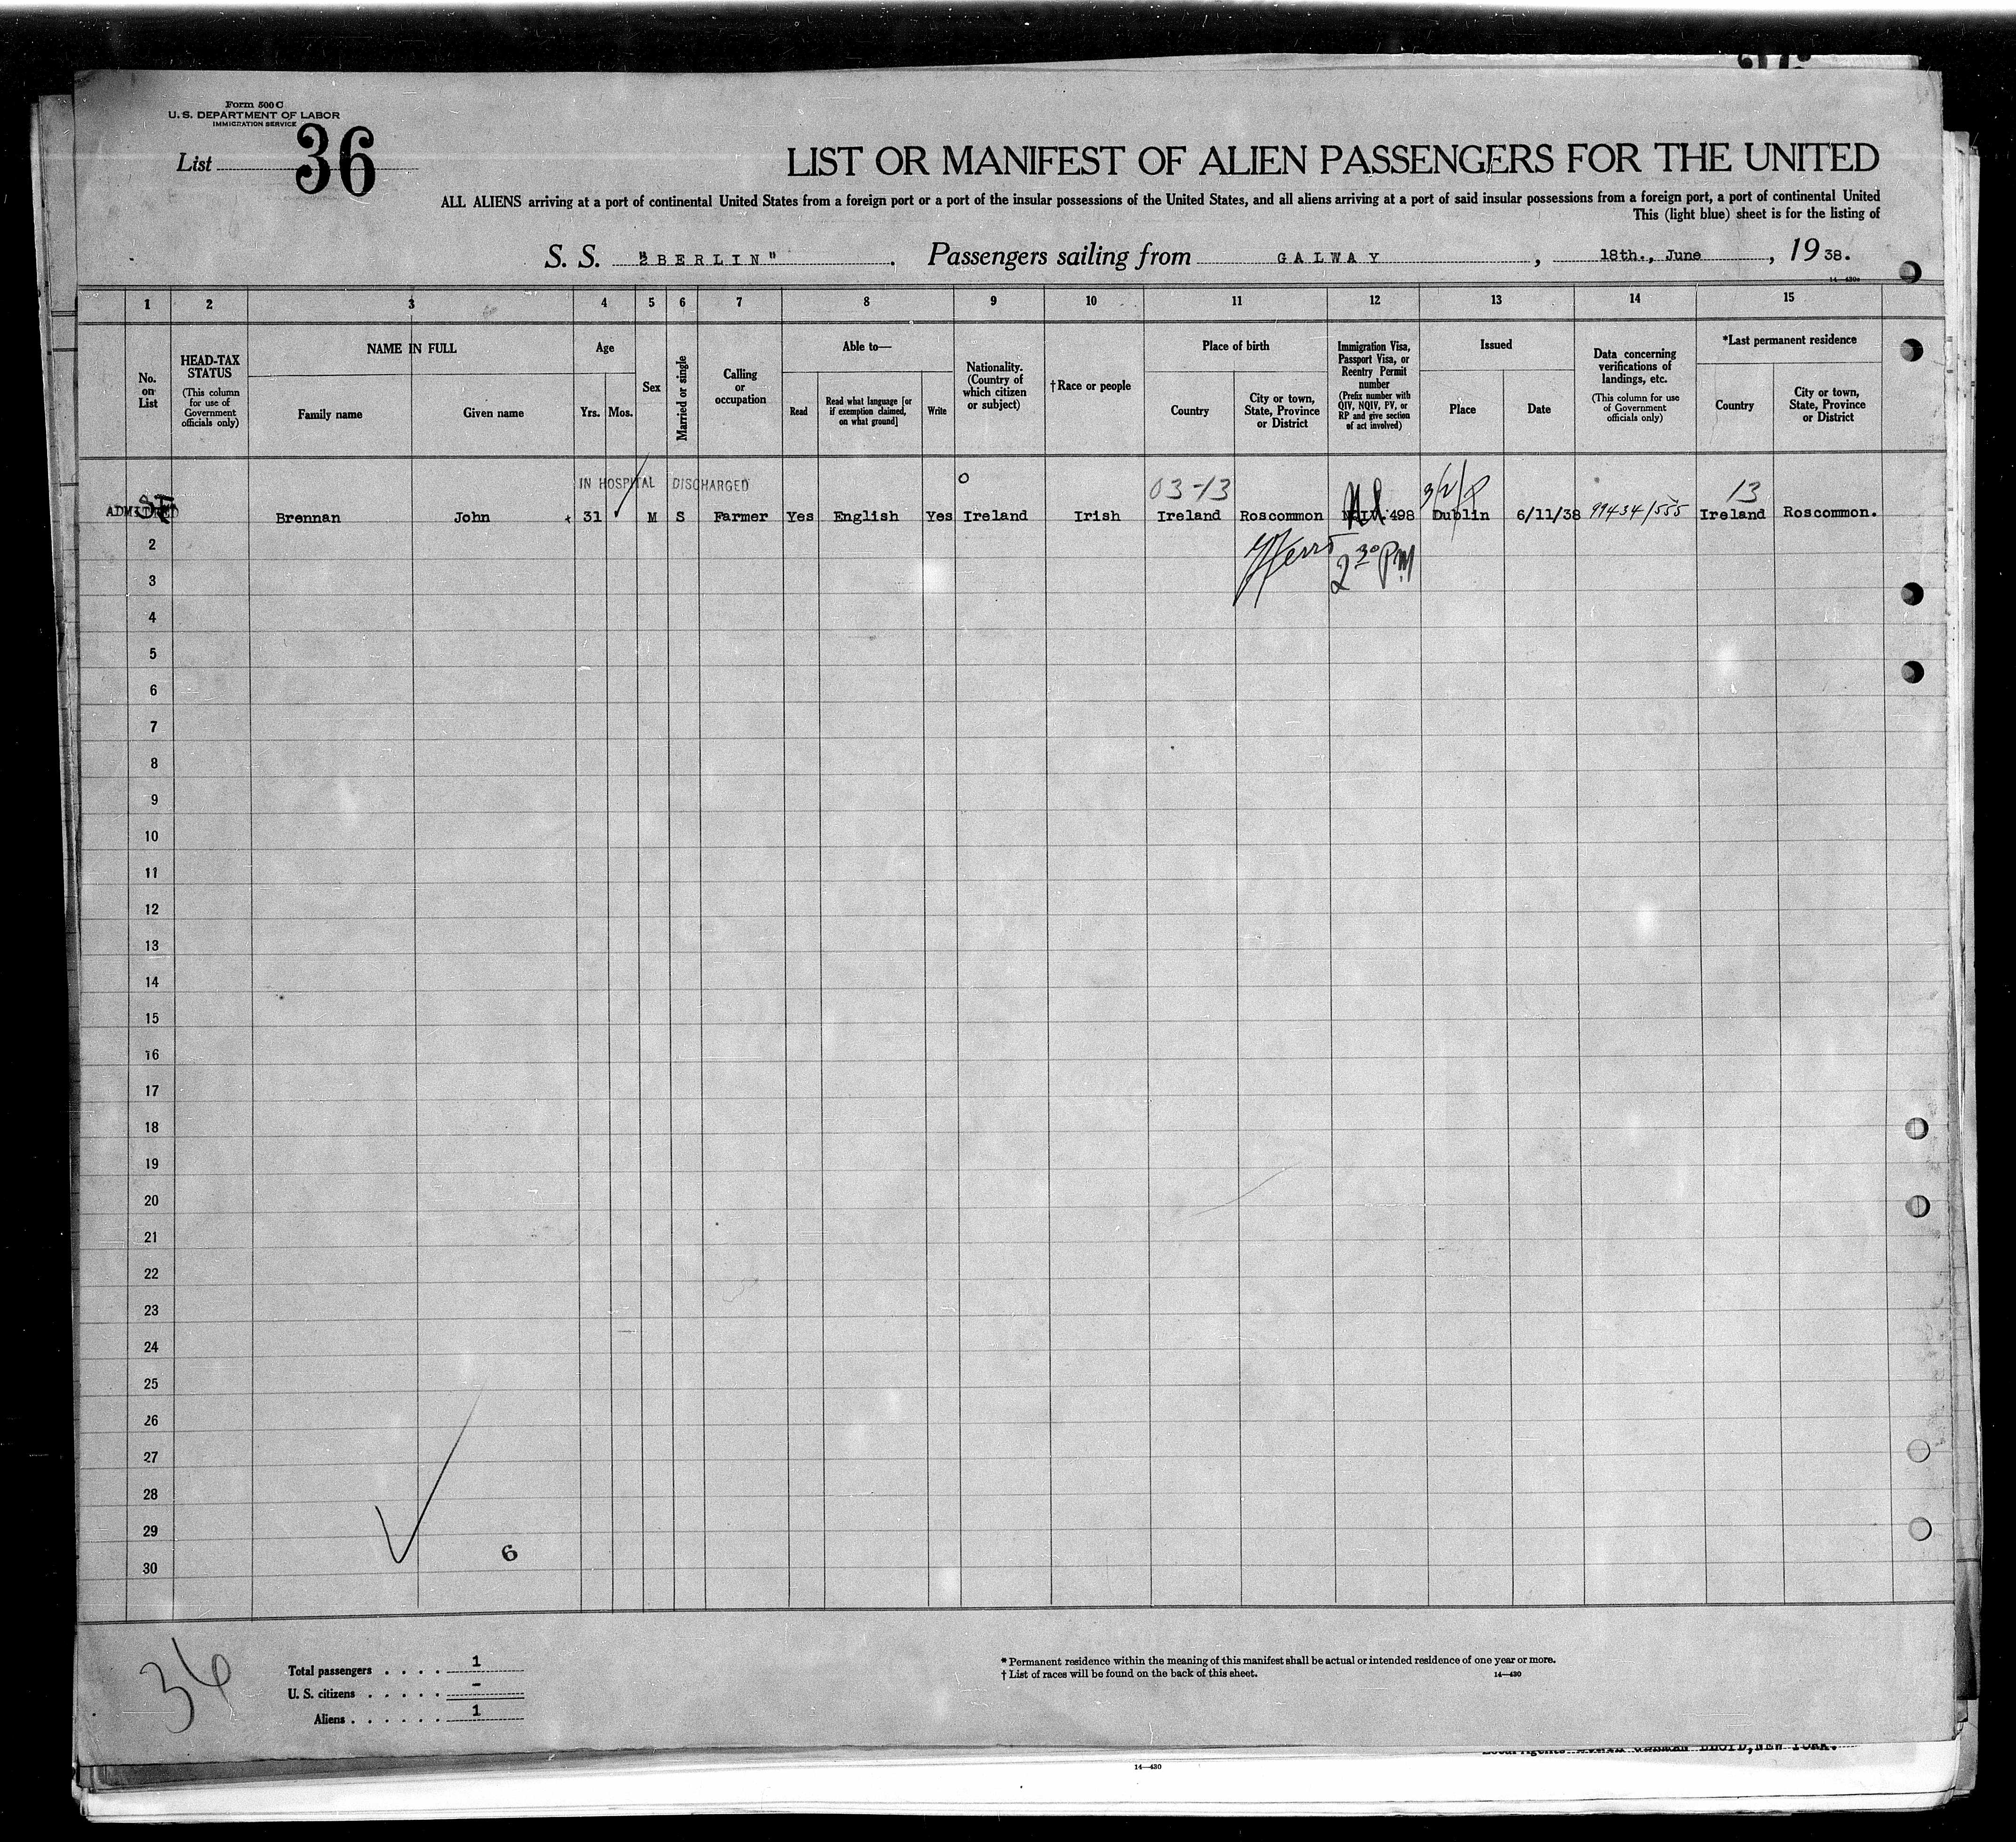 Form 500 C
U. S. DEPARTMENT OF LABOR
IMMIGRATION SERVICE
List 36
LIST OR MANIFEST OF ALIEN PASSENGERS FOR THE UNITED
ALL ALIENS arriving at a port of continental United States from a foreign port or a port of the insular possessions of the United States, and all aliens arriving at a port of said insular possessions from a foreign port, a port of continental United
This (light blue) sheet is for the listing of
S. S. "BERLIN". Passengers sailing from GALWAY, 18th., June, 1938.
14—430a
1 2 3 4 5 6 7 8 9 10 11 12 13 14 15
No. on List
HEAD-TAX STATUS
(This column for use of Government officials only)
NAME IN FULL
Family name
Given name
Age
Yrs.
Mos.
Sex
Married or single
Calling or occupation
Able to—
Read
Read what language [or if exemption claimed, on what ground]
Write
Nationality. (Country of which citizen or subject)
†Race or people
Place of birth
Country
City or town, State, Province or District
Immigration Visa, Passport Visa, or Reentry Permit number
(Prefix number with QIV, NQIV, PV, or RP and give section of act involved)
Issued
Place
Date
Data concerning verifications of landings, etc.
(This column for use of Government officials only)
*Last permanent residence
Country
City or town, State, Province or District
IN HOSPITAL DISCHARGED
03-13
13
ADMITTED Brennan John 31 M S Farmer Yes English Yes Ireland Irish Ireland Roscommon 498 Dublin 6/11/38 99434/555 Ireland Roscommon.
2 30 PM
2
3
4
5
6
7
8
9
10
11
12
13
14
15
16
17
18
19
20
21
22
23
24
25
26
27
28
29
30
6
36
Total passengers . . . . 1
U. S. citizens . . . . . -
Aliens . . . . . . 1
* Permanent residence within the meaning of this manifest shall be actual or intended residence of one year or more.
† List of races will be found on the back of this sheet.
14—430
LLOYD, NEW YORK.
14—430